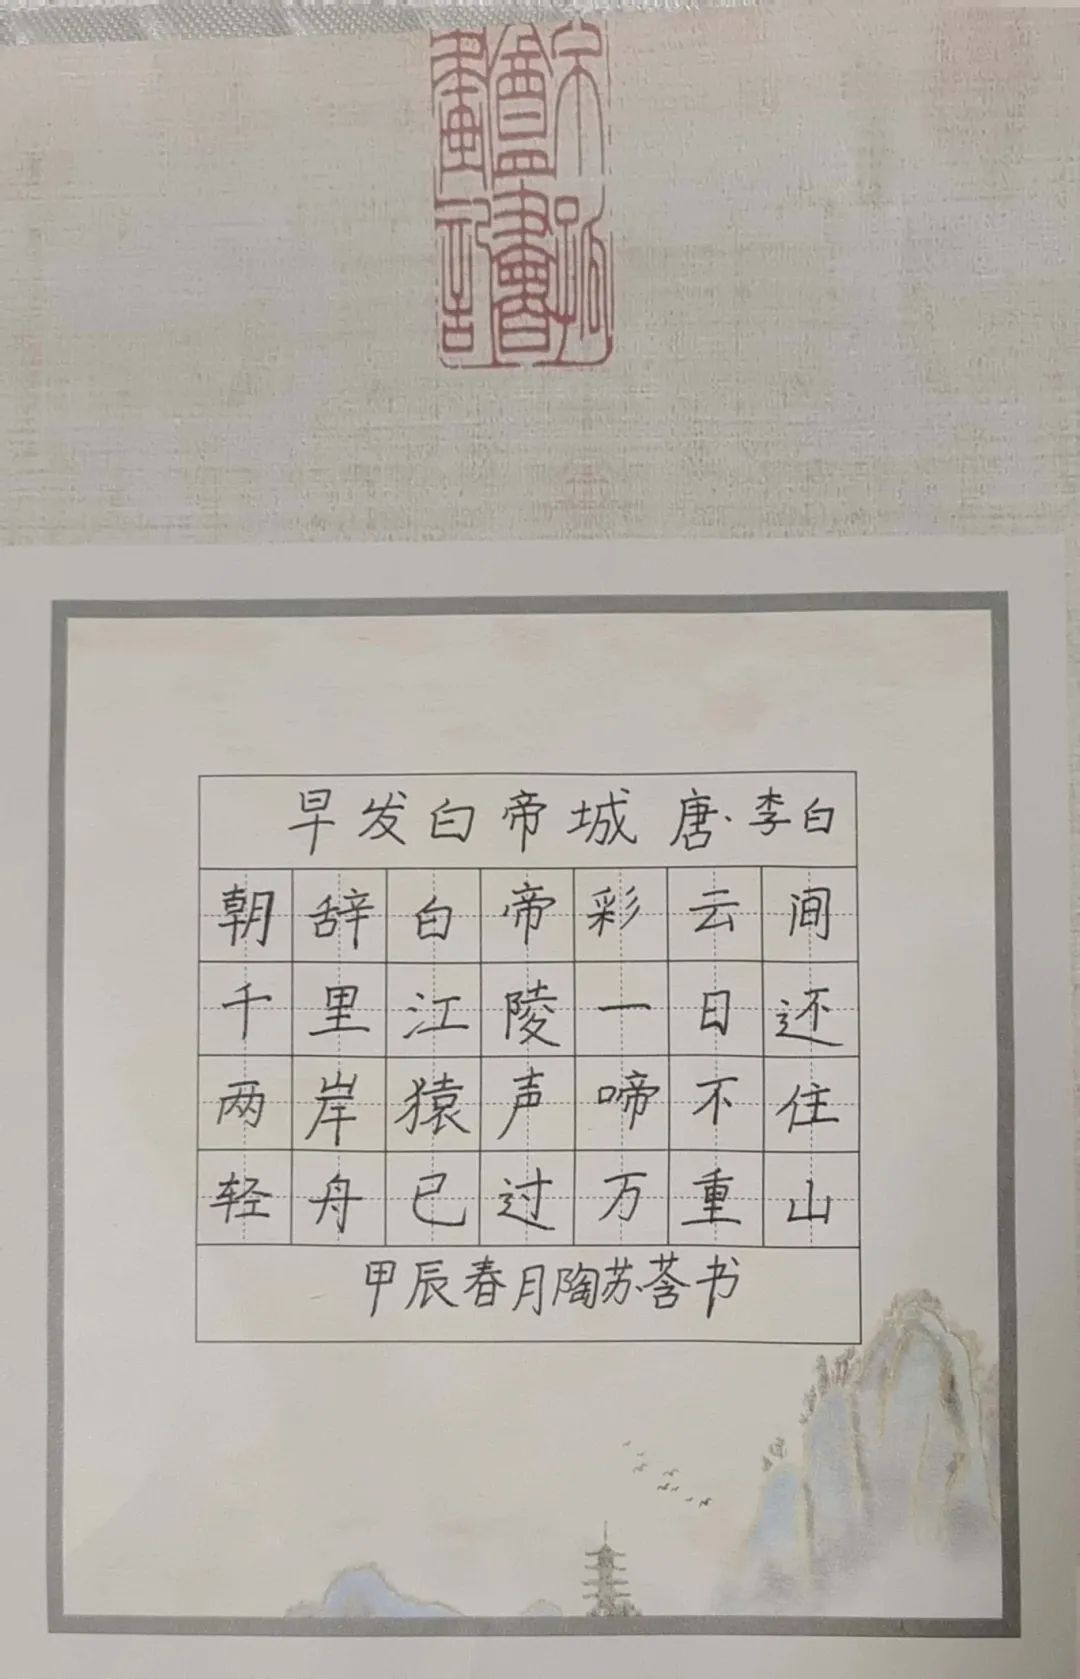 早发白帝城 唐·李白
朝辞白帝彩云间
千里江陵一日还
两岸猿声啼不住
轻舟已过万重山
甲辰春月陶苏书